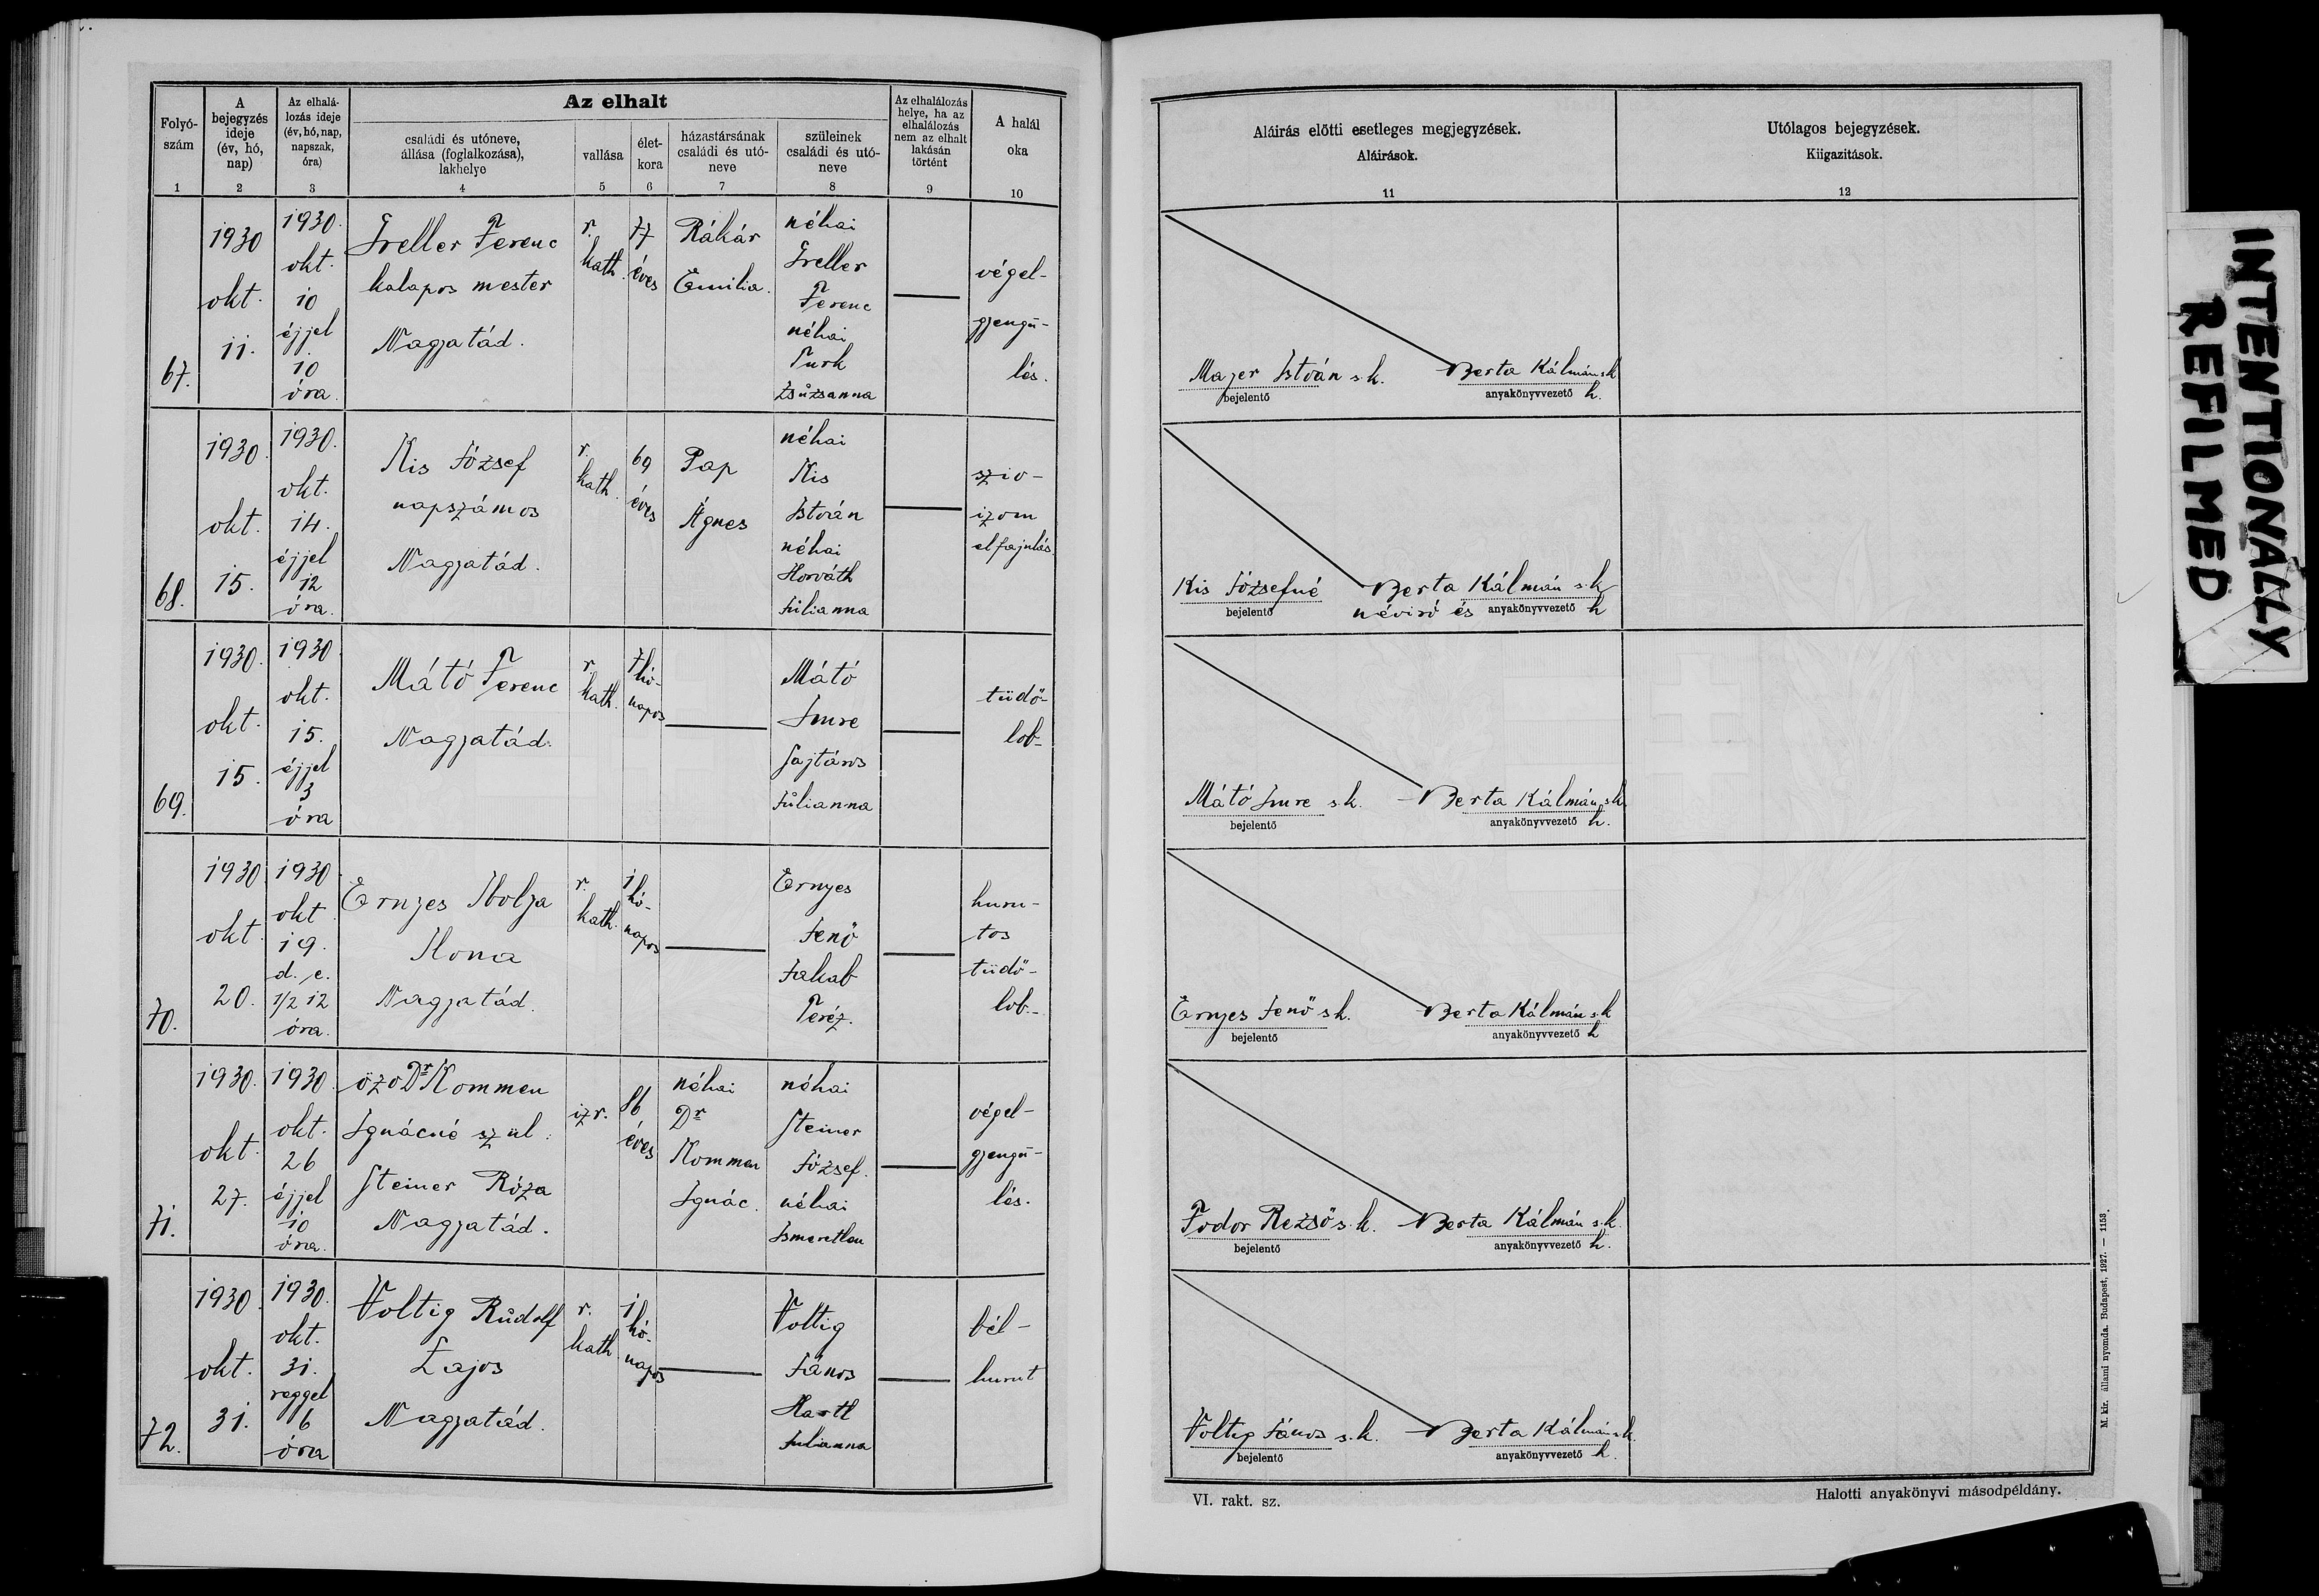 Az elhalt
Folyó-
szám
A
bejegyzés
ideje
(év, hó,
nap)
Az elhalá-
lozás ideje
(év, hó, nap,
napszak,
óra)
családi és utóneve,
állása (foglalkozása),
lakhelye
vallása
élet-
kora
házastársának
családi és utó-
neve
szüleinek
családi és utó-
neve
Az elhalálozás
helye, ha az
elhalálozás
nem az elhalt
lakásán
történt
A halál
oka
1 2 3 4 5 6 7 8 9 10
67.
1930
okt.
11.
1930.
okt.
10
éjjel
10
óra.
Freller Ferenc
kalapos mester
Nagyatád.
r.
kath.
77
éves
Rákár
Emilia.
néhai
Freller
Ferenc
néhai
Turk
Zsuzsanna
végel-
gyengü-
lés.
68.
1930.
okt.
15.
1930.
okt.
14.
éjjel
12
óra.
Kis József
napszámos
Nagyatád.
r.
kath.
69
éves
Pap
Ágnes
néhai
Kis
István
néhai
Horváth
Julianna
sziv-
izom
elfajulás.
69.
1930.
okt.
15.
1930.
okt.
15.
éjjel
3
óra
Mátó Ferenc
Nagyatád.
r.
kath.
7 hó-
napos
Mátó
Imre
Sajtáros
Julianna
tüdő-
lob-
70.
1930.
okt.
20.
1930.
okt
19.
d. e.
1/2 12
óra.
Ernyes Ibolya
Ilona
Nagyatád.
r.
kath.
1
hó-
napos
Ernyes
Jenő
Jakab
Teréz.
huru-
tos
tüdő-
lob.-
71.
1930.
okt.
27.
1930.
okt.
26
éjjel
10
óra.
özv Dr Kommen
Ignácné szül.
Steiner Róza
Nagyatád.
izr.
86
éves
néhai
Dr
Kommen
Ignác.
néhai
Steiner
József.
néhai
Ismeretlen
végel-
gyengü-
lés.
72.
1930.
okt.
31.
1930.
okt.
31.
reggel
6
óra
Voltig Rudolf
Lajos
Nagyatád.
r.
kath.
1
hó-
napos
Voltig
János
Hartl
Julianna
bél-
hurut
Aláírás előtti esetleges megjegyzések.
Aláírások.
11
Utólagos bejegyzések.
Kiigazítások.
12
Majer István s.k. Berta Kálmán s.k.
bejelentő anyakönyvvezető h.
Kis Józsefné Berta Kálmán s.k.
bejelentő névíró és anyakönyvvezető h
Mátó Imre s.k. Berta Kálmán s.k.
bejelentő anyakönyvvezető h.
Ernyes Jenő s.k. Berta Kálmán s.k
bejelentő anyakönyvvezető h
Fodor Rezső s.k. Berta Kálmán s.k.
bejelentő anyakönyvvezető h.
Voltig János s.k. Berta Kálmán s.k.
bejelentő anyakönyvvezető h.
VI. rakt. sz.
Halotti anyakönyvi másodpéldány.
M. kir. állami nyomda. Budapest, 1927. — 1153.
INTENTIONALLY
REFILMED